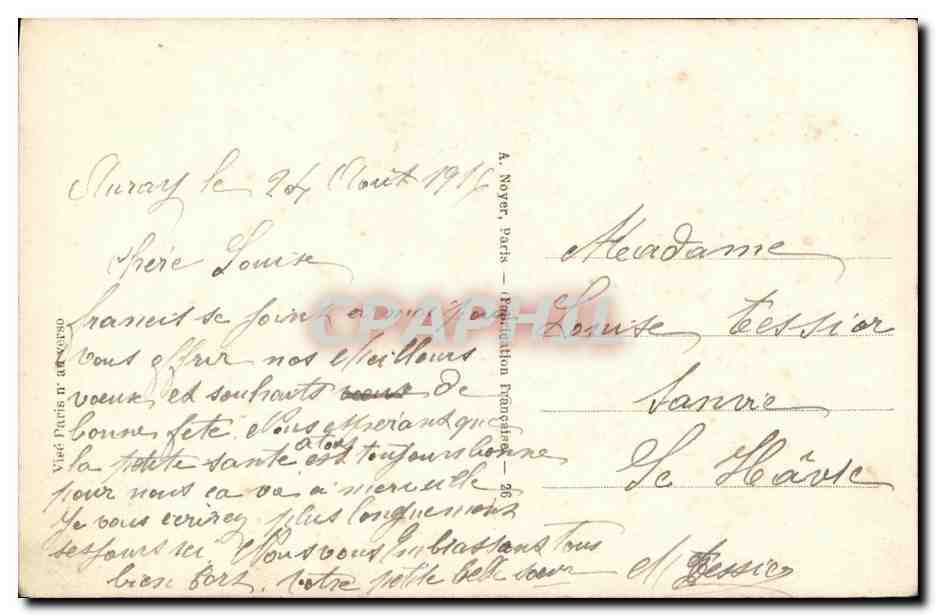 Auray le 24 Août 1916
Chère Louise
francis se joint a moi pour
vous offrir nos Meilleurs
voeux et souhaits vous de
bonne fête. Nous esperant que
la petite santé a tous est toujours bonne
pour nous ca va a merveille
Je vous ecrirez plus longuement
ses jours ci Nous vous Embrassans tous
bien fort. votre petite belle soeur M Tessier
Madame
Louise Tessior
Sanvic
Le Hâvre
A. Noyer, Paris — (Fabrication Française) — 26
Visé Paris n° au verso
CPAPHIL